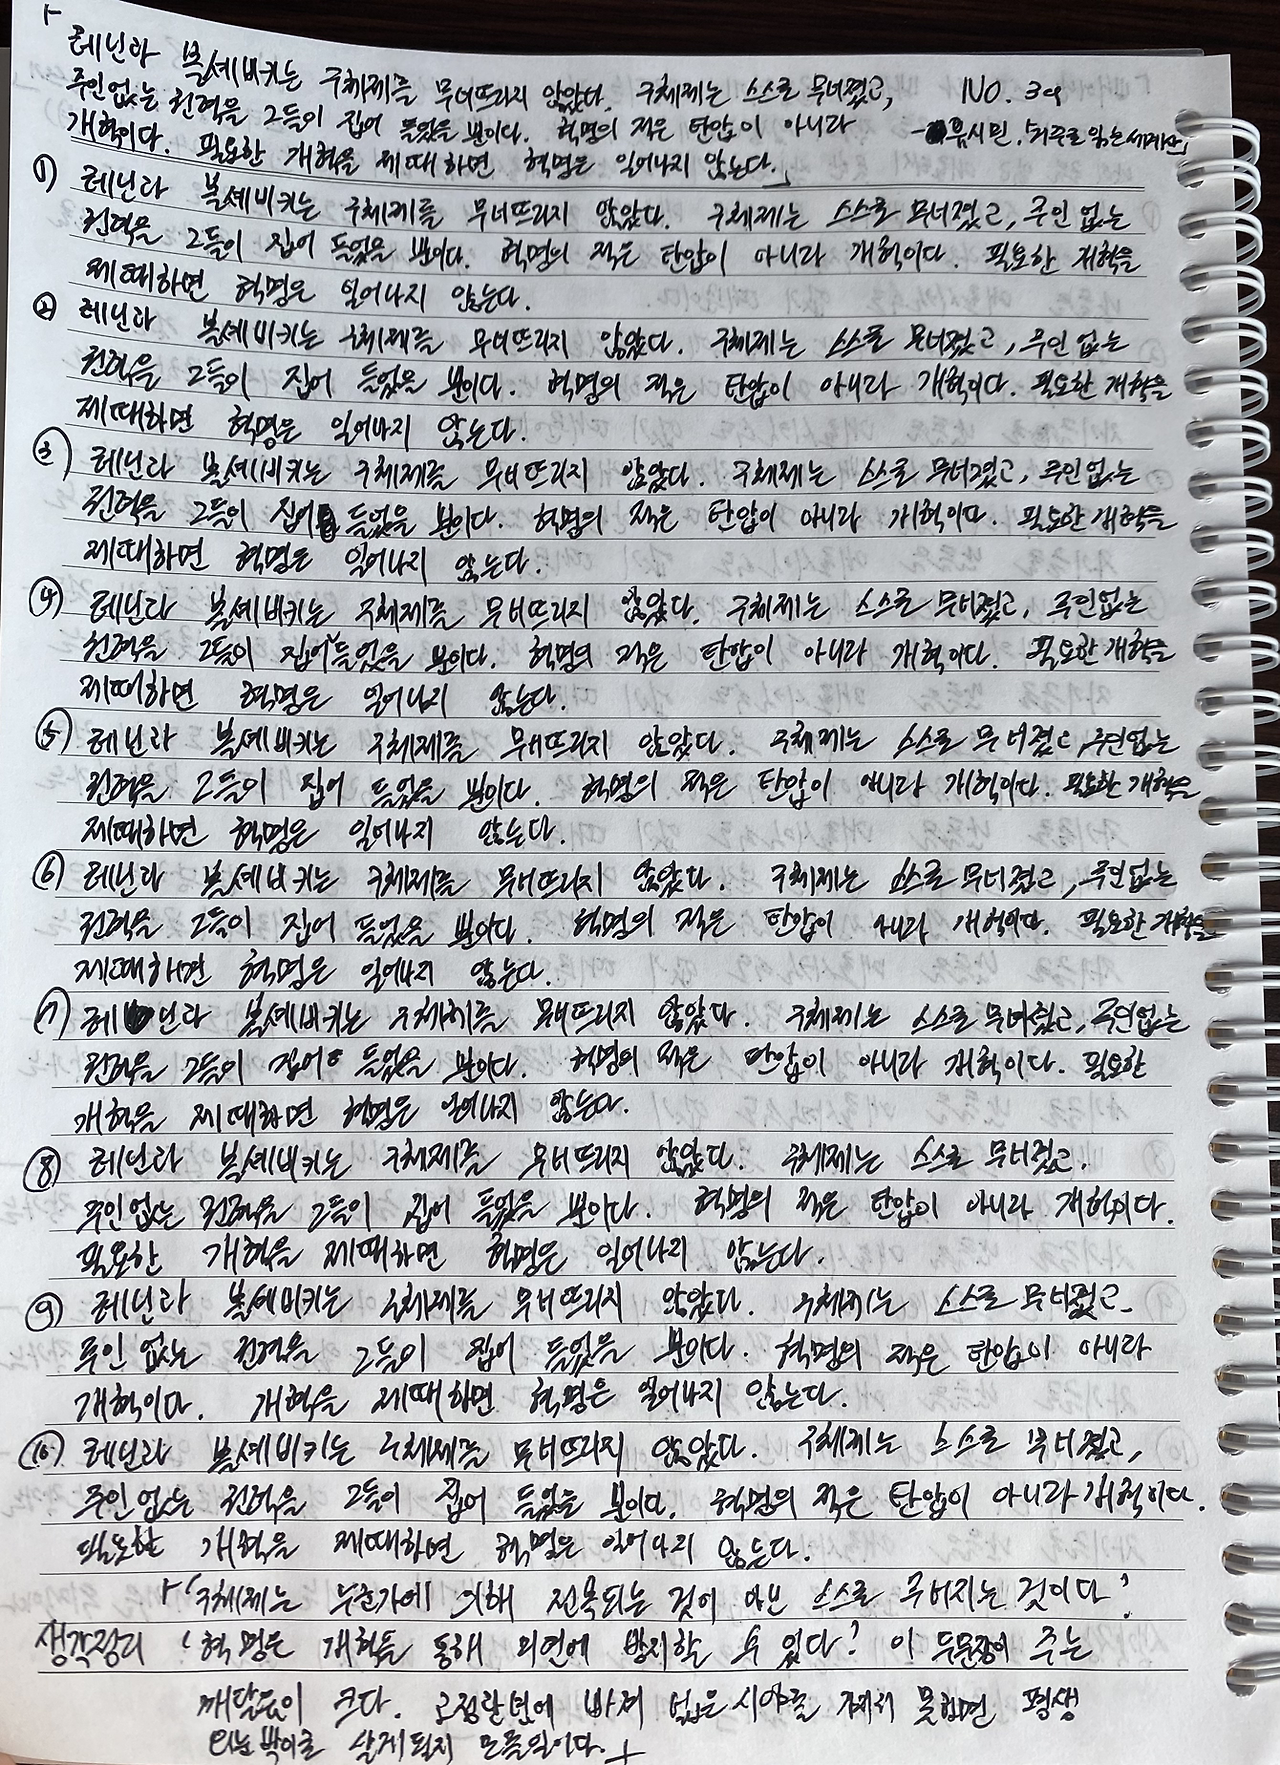 레닌라 볼셰비키는 구체제를 무너뜨리지 않았다. 구체제는 스스로 무너졌고,
주인없는 권력을 그들이 집어 들었을 뿐이다. 혁명의 적은 탄압이 아니라
개혁이다. 필요한 개혁을 제때하면 혁명은 일어나지 않는다.」
NO. 39
- 유시민, 「거꾸로 읽는 세계사」
1) 레닌라 볼셰비키는 구체제를 무너뜨리지 않았다. 구체제는 스스로 무너졌고, 주인 없는
권력을 그들이 집어 들었을 뿐이다. 혁명의 적은 탄압이 아니라 개혁이다. 필요한 개혁을
제때하면 혁명은 일어나지 않는다.
② 레닌라 볼셰비키는 구체제를 무너뜨리지 않았다. 구체제는 스스로 무너졌고, 주인 없는
권력을 그들이 집어 들었을 뿐이다. 혁명의 적은 탄압이 아니라 개혁이다. 필요한 개혁을
제때하면 혁명은 일어나지 않는다.
③ 레닌라 볼셰비키는 구체제를 무너뜨리지 않았다. 구체제는 스스로 무너졌고, 주인없는
권력을 그들이 집어 들었을 뿐이다. 혁명의 적은 탄압이 아니라 개혁이다. 필요한 개혁을
제때하면 혁명은 일어나지 않는다.
④ 레닌라 볼셰비키는 구체제를 무너뜨리지 않았다. 구체제는 스스로 무너졌고, 주인없는
권력을 그들이 집어 들었을 뿐이다. 혁명의 적은 탄압이 아니라 개혁이다. 필요한 개혁을
제때하면 혁명은 일어나지 않는다.
⑤ 레닌라 볼셰비키는 구체제를 무너뜨리지 않았다. 구체제는 스스로 무너졌고, 주인없는
권력을 그들이 집어 들었을 뿐이다. 혁명의 적은 탄압이 아니라 개혁이다. 필요한 개혁을
제때하면 혁명은 일어나지 않는다.
⑥ 레닌라 볼셰비키는 구체제를 무너뜨리지 않았다. 구체제는 스스로 무너졌고, 주인없는
권력을 그들이 집어 들었을 뿐이다. 혁명의 적은 탄압이 아니라 개혁이다. 필요한 개혁을
제때하면 혁명은 일어나지 않는다.
⑦ 레닌라 볼셰비키는 구체제를 무너뜨리지 않았다. 구체제는 스스로 무너졌고, 주인없는
권력을 그들이 집어 들었을 뿐이다. 혁명의 적은 탄압이 아니라 개혁이다. 필요한
개혁을 제때하면 혁명은 일어나지 않는다.
⑧ 레닌라 볼셰비키는 구체제를 무너뜨리지 않았다. 구체제는 스스로 무너졌고.
주인없는 권력을 그들이 집어 들었을 뿐이다. 혁명의 적은 탄압이 아니라 개혁이다.
필요한 개혁을 제때하면 혁명은 일어나지 않는다.
⑨ 레닌라 볼셰비키는 구체제를 무너뜨리지 않았다. 구체제는 스스로 무너졌고
주인 없는 권력을 그들이 집어 들었을 뿐이다. 혁명의 적은 탄압이 아니라
개혁이다. 개혁을 제때하면 혁명은 일어나지 않는다.
⑩ 레닌라 볼셰비키는 구체제를 무너뜨리지 않았다. 구체제는 스스로 무너졌고,
주인없는 권력을 그들이 집어 들었을 뿐이다. 혁명의 적은 탄압이 아니라 개혁이다.
필요한 개혁을 제때하면 혁명은 일어나지 않는다.
'구체제는 누군가에 의해 전복되는 것이 아닌 스스로 무너지는 것이다'
생각정리 '혁명은 개혁을 통해 미연에 방지할 수 있다' 이 두문장이 주는
깨달음이 크다. 고정관념에 빠져 넓은 시야를 갖지 못하면 평생
우물 살게될지 모를일이다.